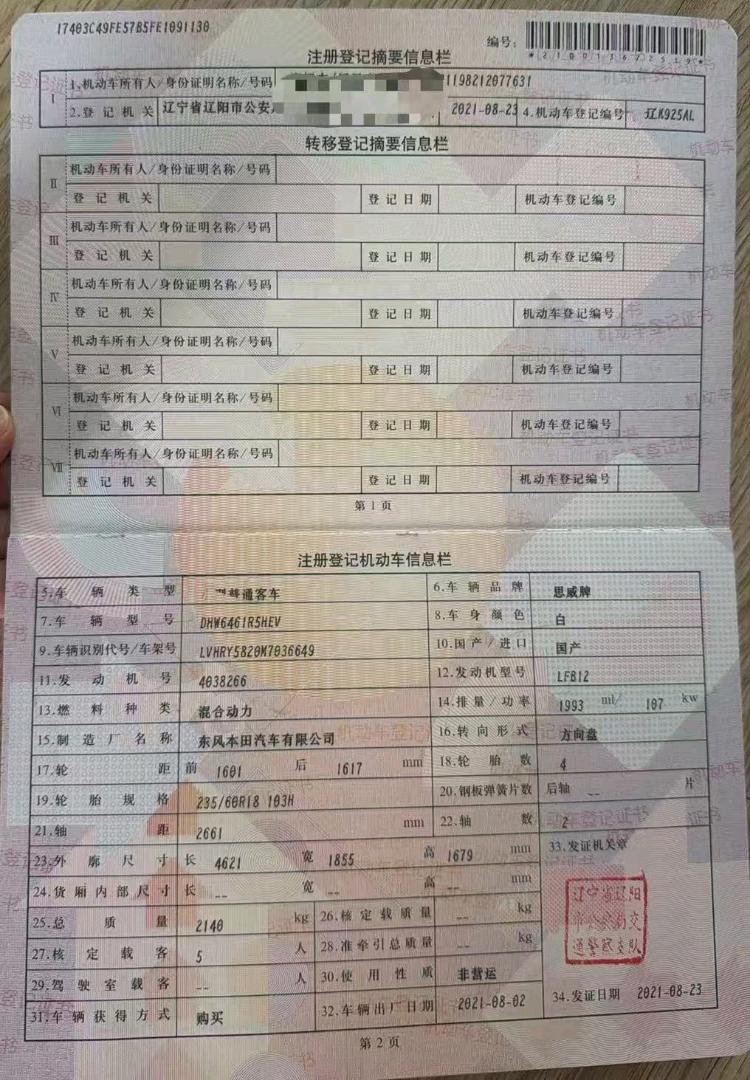 17403C49FE57B5FE1091130
编号:
*210013672519*
注册登记摘要信息栏
I 1.机动车所有人/身份证明名称/号码 1198212077631
2.登记机关 辽宁省辽阳市公安 2021-08-23 4.机动车登记编号 辽K925AL
转移登记摘要信息栏
II 机动车所有人/身份证明名称/号码
登记机关 登记日期 机动车登记编号
III 机动车所有人/身份证明名称/号码
登记机关 登记日期 机动车登记编号
IV 机动车所有人/身份证明名称/号码
登记机关 登记日期 机动车登记编号
V 机动车所有人/身份证明名称/号码
登记机关 登记日期 机动车登记编号
VI 机动车所有人/身份证明名称/号码
登记机关 登记日期 机动车登记编号
VII 机动车所有人/身份证明名称/号码
登记机关 登记日期 机动车登记编号
第1页
注册登记机动车信息栏
5.车辆类型 普通客车 6.车辆品牌 思威牌
7.车辆型号 DHW6461R5HEV 8.车身颜色 白
9.车辆识别代号/车架号 LVHRY5820M7036649 10.国产/进口 国产
11.发动机号 4038266 12.发动机型号 LFB12
13.燃料种类 混合动力 14.排量/功率 1993 ml/ 107 kw
15.制造厂名称 东风本田汽车有限公司 16.转向形式 方向盘
17.轮距 前 1601 后 1617 mm 18.轮胎数 4
19.轮胎规格 235/60R18 103H 20.钢板弹簧片数 后轴 -- 片
21.轴距 2661 mm 22.轴数 2
23.外廓尺寸 长 4621 宽 1855 高 1679 mm 33.发证机关章
24.货厢内部尺寸 长 -- 宽 -- 高 -- mm
25.总质量 2140 kg 26.核定载质量 -- kg
27.核定载客 5 人 28.准牵引总质量 -- kg
辽宁省辽阳
市公安局交
通警察支队
29.驾驶室载客 -- 人 30.使用性质 非营运
31.车辆获得方式 购买 32.车辆出厂日期 2021-08-02 34.发证日期 2021-08-23
第2页